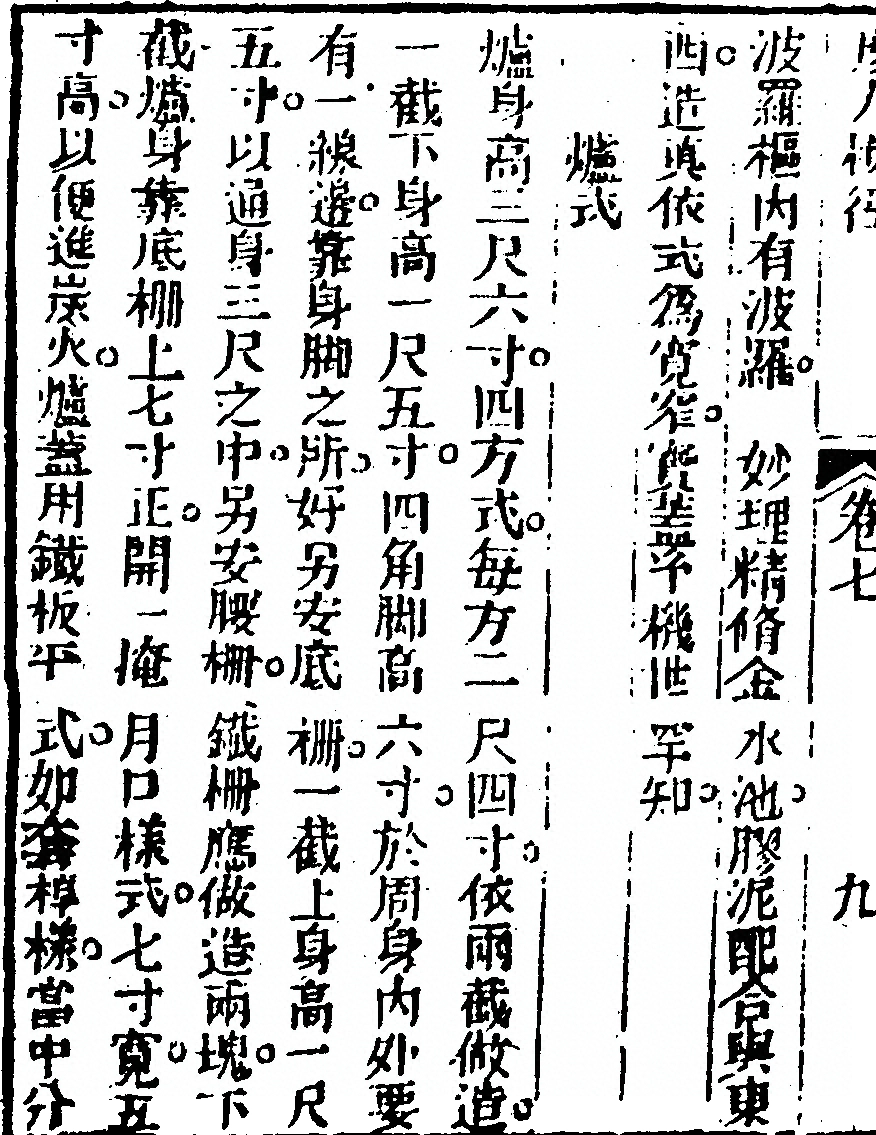 卷七
九
波羅樞內有波羅 妙理精脩金水池膠泥配合與東
西造真依式為寬窄寶蓋平機世罕知
爐式
爐身高三尺六寸四方式每方二尺四寸依兩截做造
一截下身高一尺五寸四角脚高六寸於周身內外要
有一線邊靠身脚之所好另安底柵一截上身高一尺
五寸以通身三尺之中另安腰柵鐵柵應做造兩塊下
截爐身靠底柵上七寸正開一掩月口樣式七寸寬五
寸高以便進炭火爐蓋用鐵板平式如套桿樣當中分